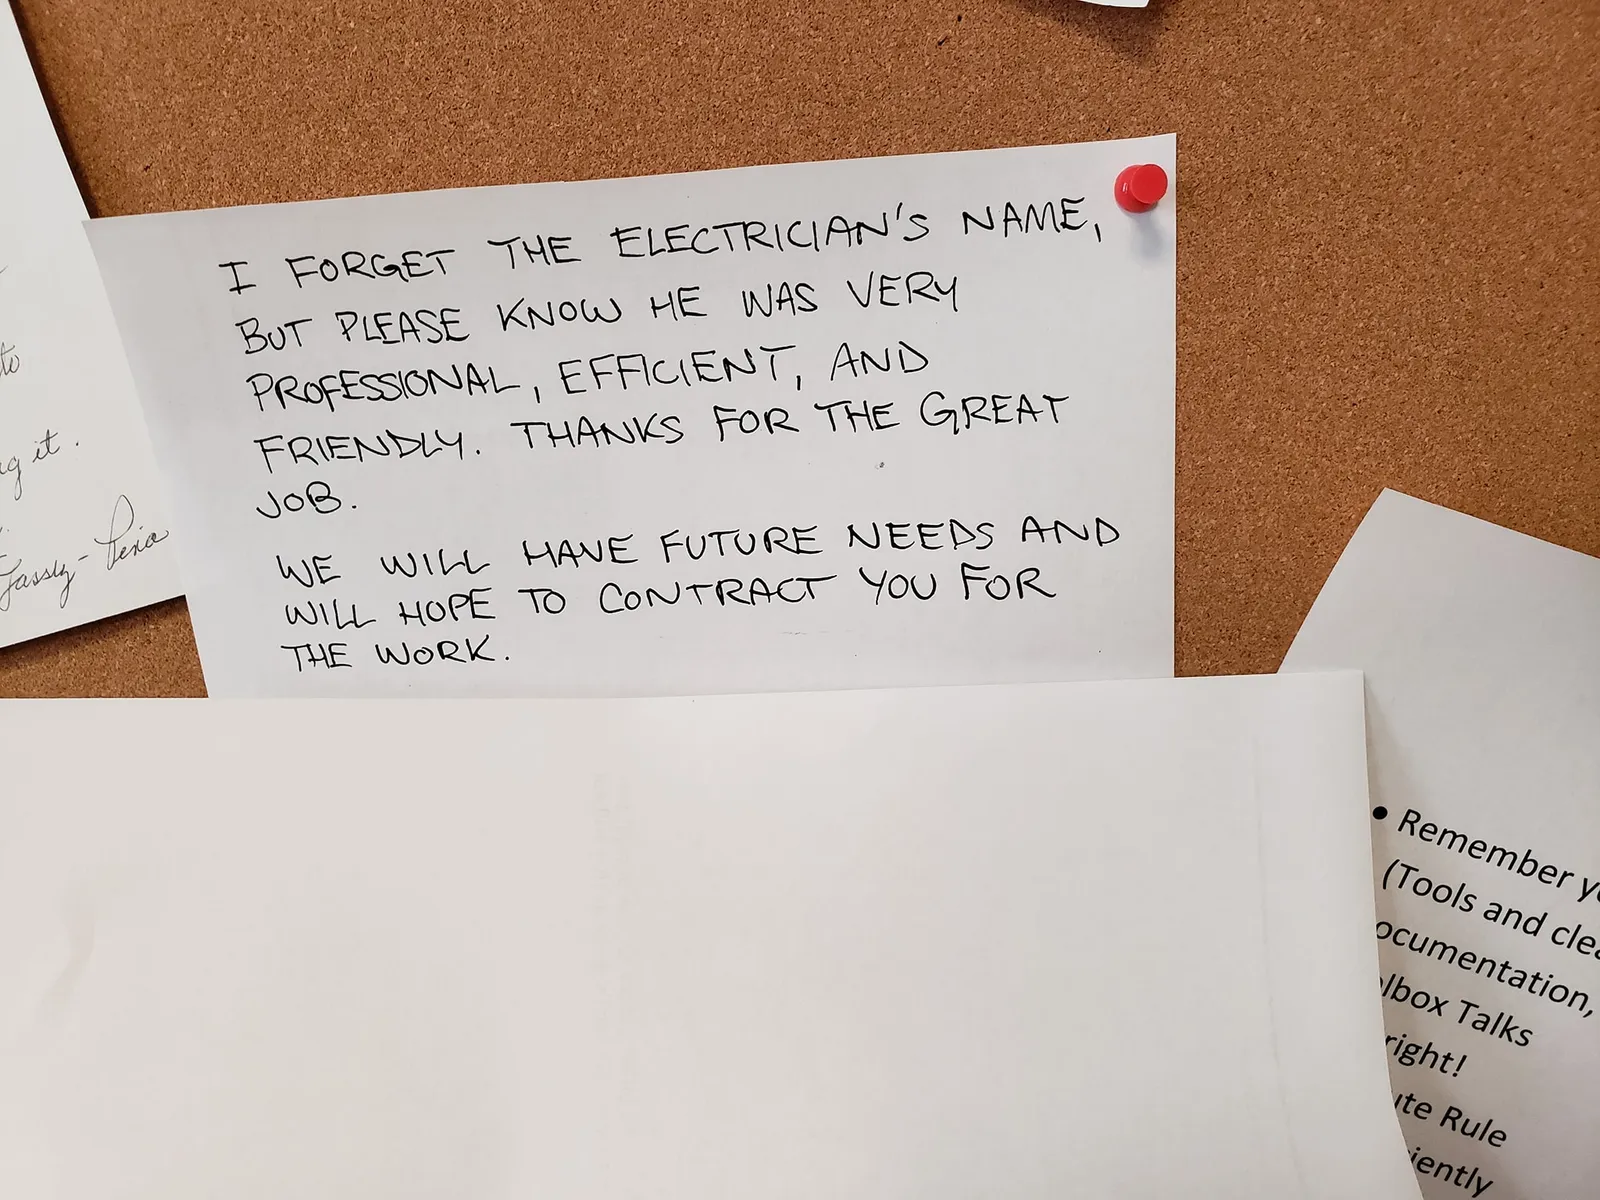 I FORGET THE ELECTRICIAN'S NAME,
BUT PLEASE KNOW HE WAS VERY
PROFESSIONAL, EFFICIENT, AND
FRIENDLY. THANKS FOR THE GREAT
JOB.
WE WILL HAVE FUTURE NEEDS AND
WILL HOPE TO CONTRACT YOU FOR
THE WORK.
to
it.
• Remember
(Tools and
Talks
right!
Rule